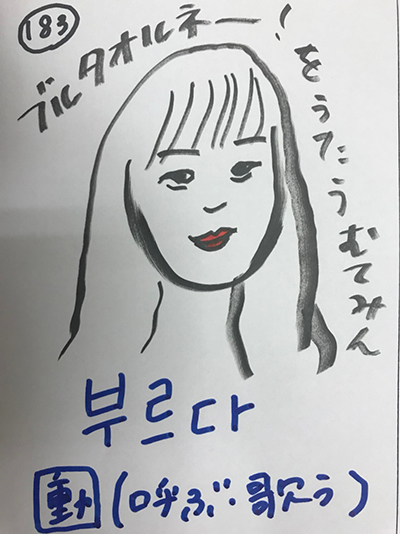 183
ブルタオルネー!
をうたうむてみん
부르다
動(呼ぶ・歌う)